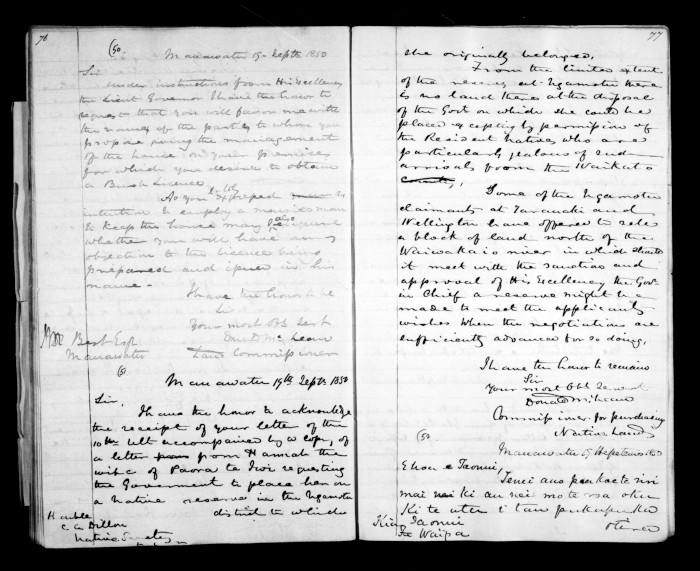 76
(50
Manawatu 19 Septr 1850
Sir
Under instructions from His Excellency
the Lieut Governor I have the honor to
request that you will favor me with
the names of the parties to whom you
propose giving the management
of the house on your premises
for which you desire to obtain
a Bush Licence
As you expressed
intention to employ a married man
to keep the house may I also
whether you will have any
objection to the licence being
prepared and in his
name.
I have the honor to be
Sir
Your most obt Sert
Donald McLean
Land Commissioner
Best Esqr
Manawatu
(51
Manawatu 19th Septr 1850
Sir,
I have the honor to acknowledge
the receipt of your letter of the
10th ult accompanied by a copy of
a letter from Hannah the
wife of Paora te Iwi requesting
the Government to place her on
a native reserve in the Ngamotu
district to which
Honble
C. A. Dillon
Native Secretary
77
she originally belonged,
From the limited extent
of the reserve at Ngamotu there
is no land there at the disposal
of the Govt on which she could be
placed excepting by permission of
the Resident Natives who are
particularly jealous of such
arrivals from the Waikato
Some of the Ngamotu
claimants at Taranaki and
Wellington have offered to sell
a block of land north of the
Waiwakaio river in which should
it meet with the sanction and
approval of His Excellency the Govr
in Chief a reserve might be
made to meet the applicants
wishes when the negotiations are
sufficiently advanced for so doing.
I have the honor to remain
Sir
Your most Obt Servt
Donald McLean
Commissioner for purchasing
Native Lands
(52
Manawatu 19 Hepetema 1850
Ehoa e Taonui,
Tenei ano pukaete
mai ki au nei mo te roa oku
Ki te utu i tau pukapuka
King Taonui
Waipa